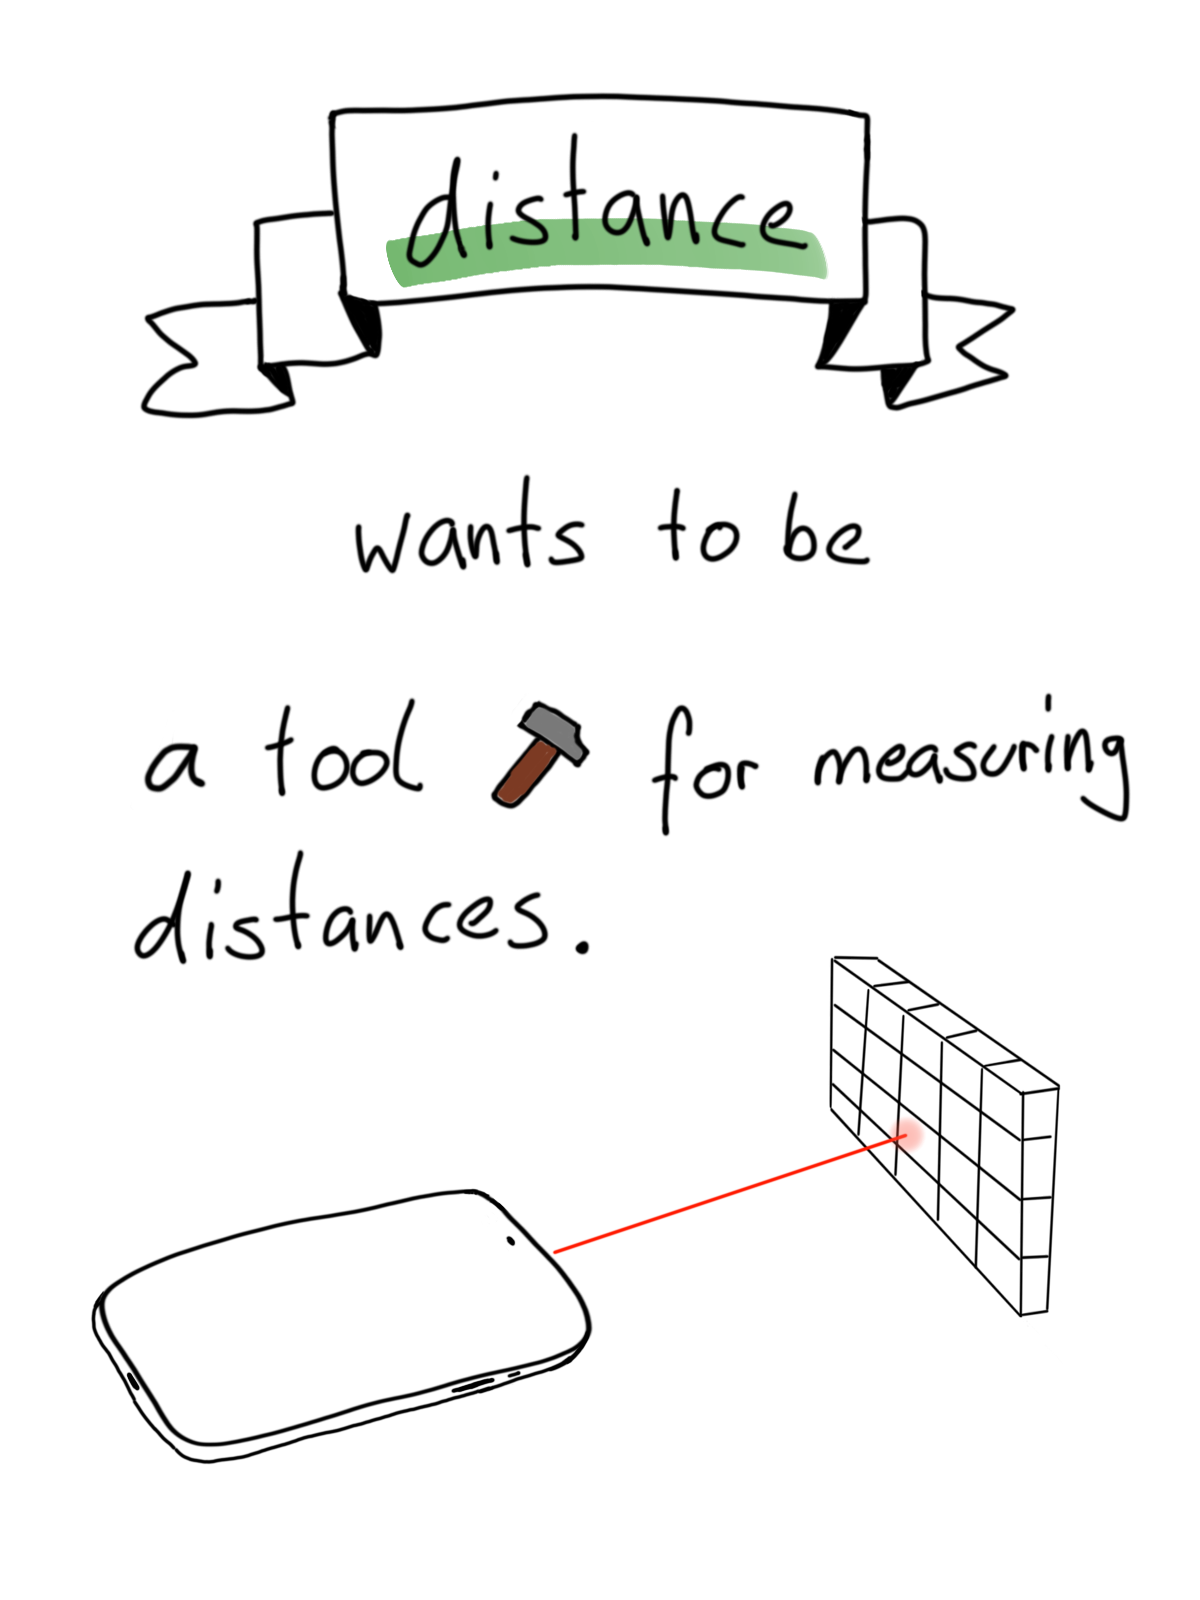 distance
wants to be
a tool for measuring
distances.